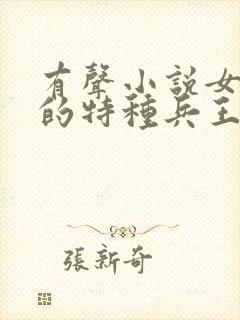 有聲小說女
的特種兵王
張新奇